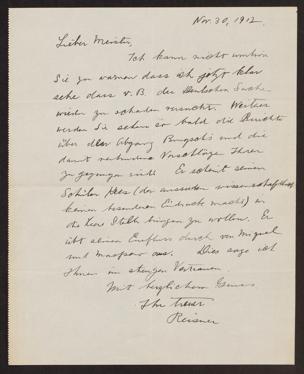 Nov. 30, 1912
Lieber Meister,
Ich kann nicht umhin
Sie zu warnen dass ich jetzt klar
sehe dass v. B. der deutschen Sache
wieder zu schaden versucht. Weiter
werden Sie sehen so bald die Berichte
über den Abgang Brugschs und die
damit verbundene Vorschläge Ihnen
zugegangen sind. Er scheint seinen
Schüler Kees (der aussieht wissenschaftlich
keinen besonderen Eindruck macht) an
die Stelle bringen zu wollen. Er
übt seinen Einfluss durch von Miquel
und Maspero aus. Dies sage ich
Ihnen im strengen Vertrauen.
Mit herzlichem Gruss
Ihr treuer
Reisner